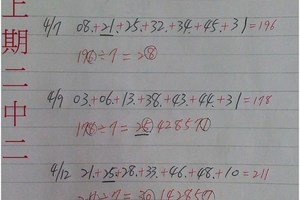 上期二中二
4/7 08.+21.+25.+32.+34.+45.+31=196
196÷7=28
4/9 03.+06.+13.+38.+43.+44.+31=178
178÷7=25.428571
4/12 21.+25+28.+33.+46.+48.+10=211
211÷7=30.142857